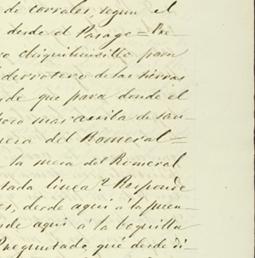 de corrales, segun el
desde el Parage = Pre-
chiquihuitillo para
derrotero de las tierras
de que para donde el
maravilla de San
mesa del Romeral =
la mesa del Romeral
tada linea? Responde
es, desde aqui á la puen-
sde aqui á la boquilla
Preguntado, qué desde di-